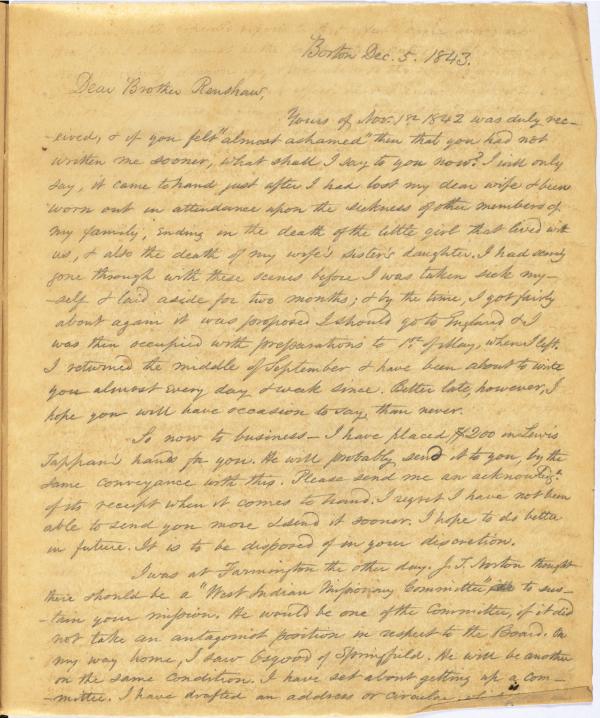 Boston Dec. 5. 1843.
Dear Brother Renshaw,
Yours of Nov. 1st 1842 was duly rec-
-eived, & if you felt "almost ashamed" then that you had not
written me sooner, what shall I say to you now? I will only
say, it came to hand just after I had lost my dear wife & been
worn out in attendance upon the sickness of other members of
my family, ending in the death of the little girl that lived with
us, & also the death of my wife's sister's daughter. I had scarcely
gone through with these scenes before I was taken sick my-
-self & laid aside for two months; & by the time, I got fairly
about again it was proposed I should go to England & I
was then occupied with preparations to 1st of May, when I left.
I returned the middle of September & have been about to write
you almost every day & week since. Better late, however, I
hope you will have occasion to say, than never.
So now to business – I have placed, $200 in Lewis
Tappan's hands for you. He will probably send it to you, by the
same conveyance with this. Please send me an acknowldg.t
of its receipt when it comes to hand. I regret I have not been
able to send you more & send it sooner. I hope to do better
in future. It is to be disposed of in your discretion.
I was at Farmington the other day. J. T. Norton thought
there should be a "West Indian Missionary Committee," to sus-
-tain your mission. He would be one of the Committee, if it did
not take an antagonist position in respect to the Board. On
my way home, I saw Osgood of Springfield. He will be another
on the same condition. I have set about getting up a com-
-mittee. I have drafted an address or circular